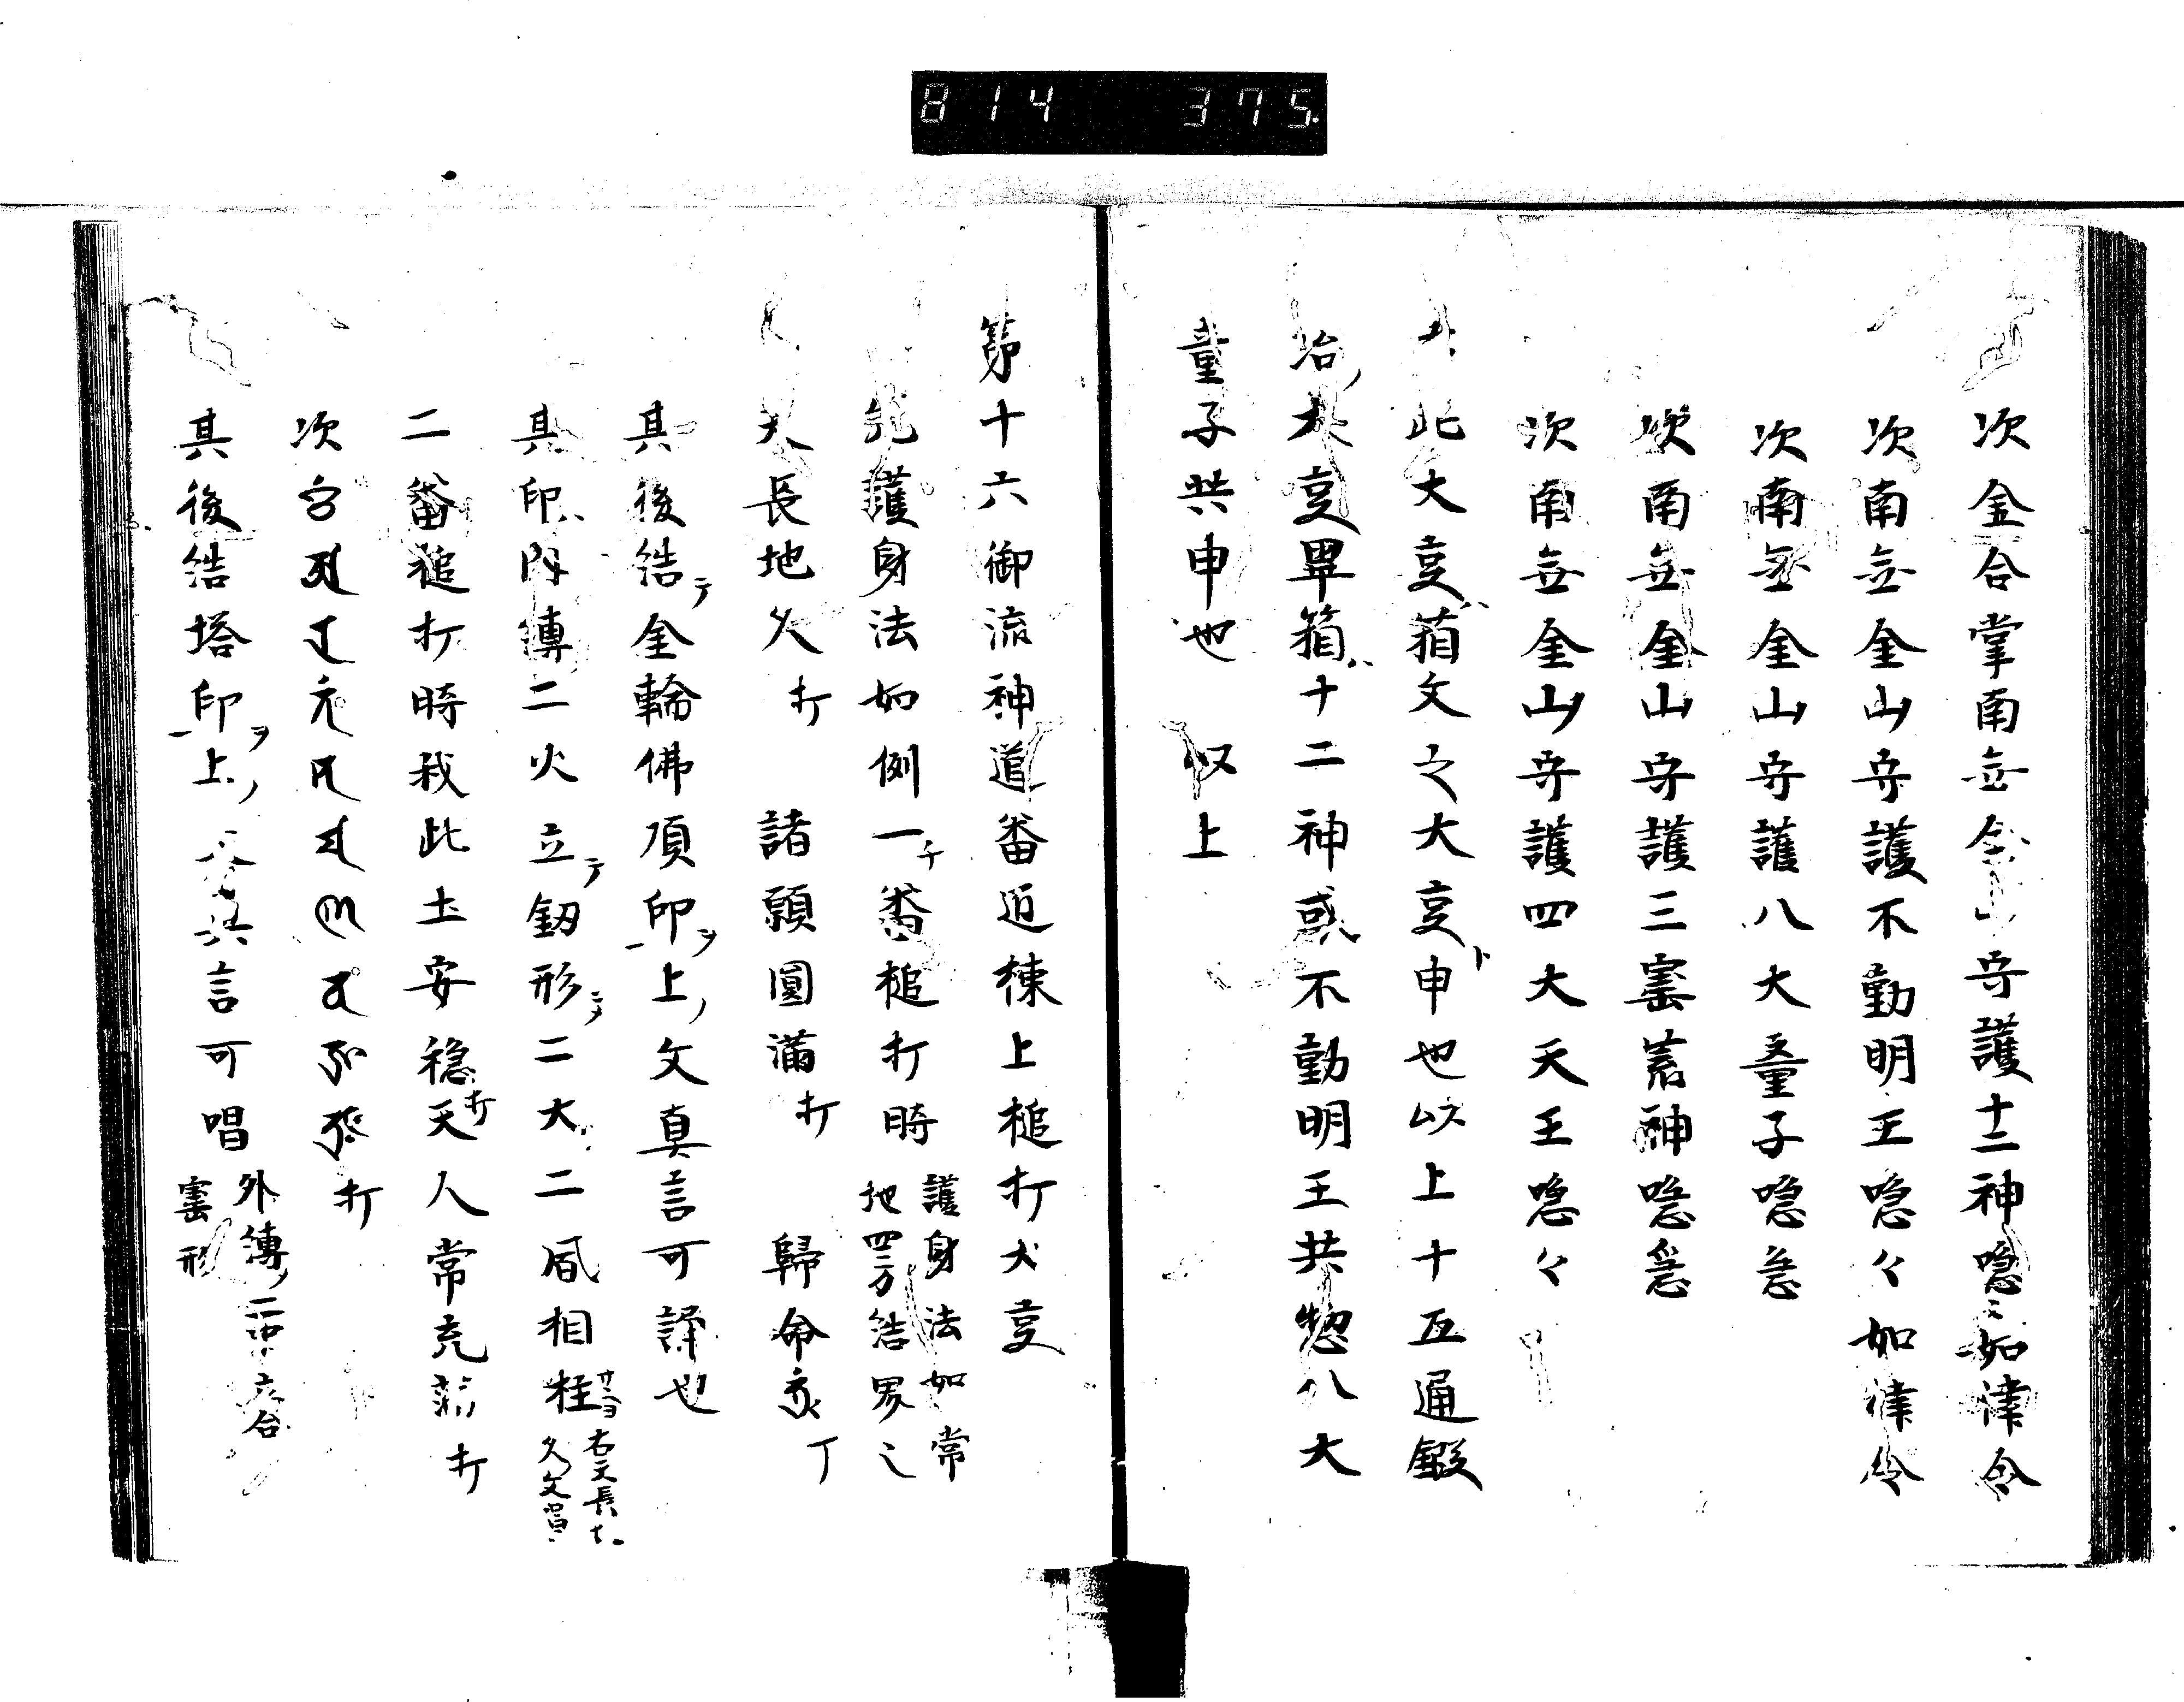 814 375.
次金合掌南無金山守護十二神喼〻如律令
次南無金山守護不動明王喼々如律令
次南無金山守護八大童子喼急
次南無金山守護三宝荒神喼急
次南無金山守護四大天王喼々
此大事箱文之大事ト申也以上十五通鍛
冶大事畢箱十二神或不動明王共惣八大
童子共申也 以上
第十六御流神道番匠棟上槌打大事
先護身法如例一千番槌打時 護身法如常 地四方結界之
天長地久打 諸願圓滿打 歸命
其後結テ金輪佛頂印ヲ上文真言可誦也
其印内縛二火立テ釼形ニ二大二風相柱
二番槌打時我此土安穏打天人常充満打
次字 打
其後結塔印ヲ上 真言可唱 外縛二中 合 宝形